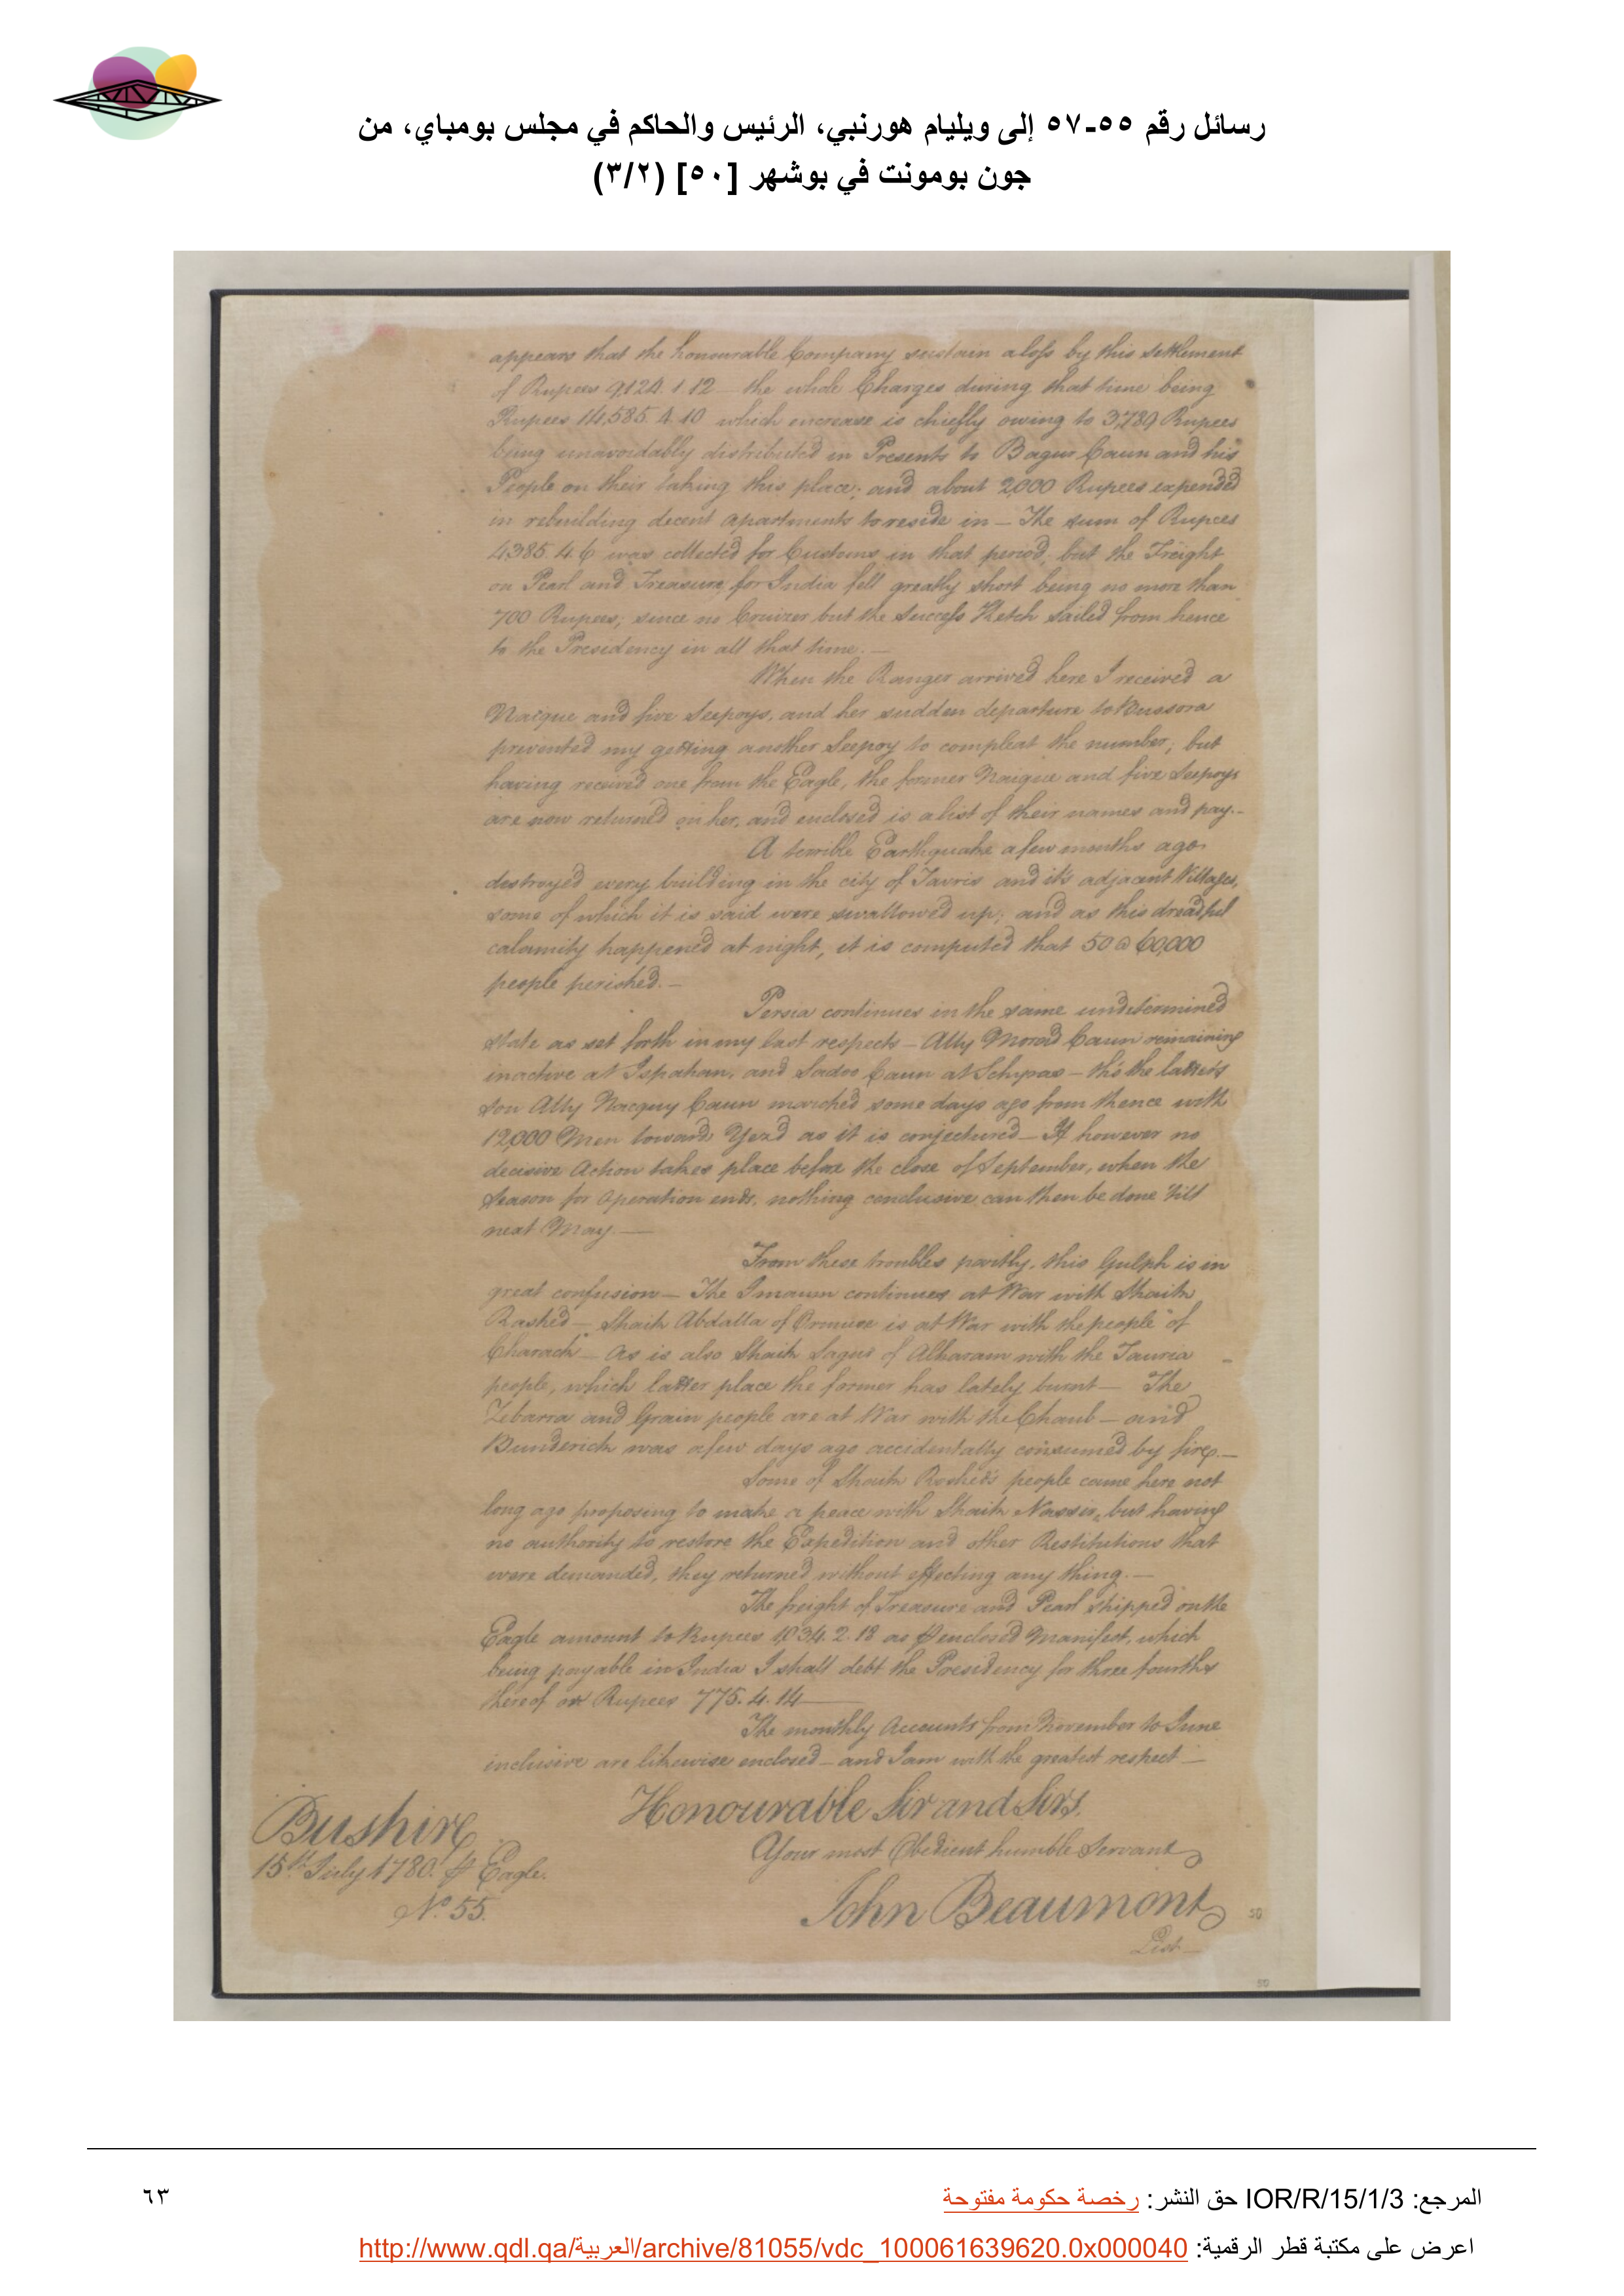 رسائل رقم ٥٥-٥٧ إلى ويليام هورنبي، الرئيس والحاكم في مجلس بومباي، من
جون بومونت في بوشهر [٥٠] (٣/٢)
appears that the honourable Company sustain a loss by this settlement
of Rupees 9,124. 1. 12 – the whole Charges during that time being
Rupees 14,585. 4. 10 which increase is chiefly owing to 3,789 Rupees
being unavoidably distributed in Presents to Bagur Caun and his
People on their taking this place; and about 2,000 Rupees expended
in rebuilding decent apartments to reside in – The sum of Rupees
4385. 4. 6 was collected for Customs in that period, but the Freight
on Pearl and Treasure for India fell greatly short being no more than
700 Rupees; since no Cruizer but the Success Ketch sailed from hence
to the Presidency in all that time. –
When the Ranger arrived here I received a
Naique and five Seepoys, and her sudden departure to Bussora
prevented my getting another Seepoy to compleat the number; but
having received one from the Eagle, the former Naique and five Seepoys
are now returned on her, and enclosed is a list of their names and pay. –
A terrible Earthquake a few months ago
destroyed every building in the city of Tavris and it's adjacent Villages,
some of which it is said were swallowed up; and as this dreadful
calamity happened at night, it is computed that 50 @ 60,000
people perished. –
Persia continues in the same undetermined
state as set forth in my last respects – Ally Morad Caun remaining
inactive at Ispahan, and Sadoo Caun at Schyras – tho' the latter's
son Ally Nacquy Caun marched some days ago from thence with
12,000 Men towards Yezd as it is conjectured – If however no
decisive Action takes place before the close of September, when the
Season for operation ends, nothing conclusive can then be done 'till
next May. –
From these troubles partly, this Gulph is in
great confusion – The Imaum continues at War with Shaik
Rashed – Shaik Abdalla of Ormuse is at War with the people of
Charack – As is also Shaik Sagur of Alharam with the Tauria
people, which latter place the former has lately burnt – The
Zebarra and Grain people are at War with the Chaub – and
Bunderick was a few days ago accidentally consumed by fire. –
Some of Shaik Rashed's people came here not
long ago proposing to make a peace with Shaik Nasser, but having
no authority to restore the Expedition and other Restitutions that
were demanded, they returned without effecting any thing. –
The freight of Treasure and Pearl shipped on the
Eagle amount to Rupees 1,034. 2. 18 as ⅌ enclosed Manifest, which
being payable in India I shall debt the Presidency for three fourths
thereof or Rupees 775. 4. 14 –
The monthly Accounts from November to June
inclusive are likewise enclosed – and I am with the greatest respect –
Honourable Sir and Sirs,
Your most Obedient humble Servant
John Beaumont
Bushire
15th July 1780. ⅌ Eagle.
No. 55.
50
List
50
المرجع: IOR/R/15/1/3 حق النشر: رخصة حكومة مفتوحة
٦٣
اعرض على مكتبة قطر الرقمية: http://www.qdl.qa/العربية/archive/81055/vdc_100061639620.0x000040